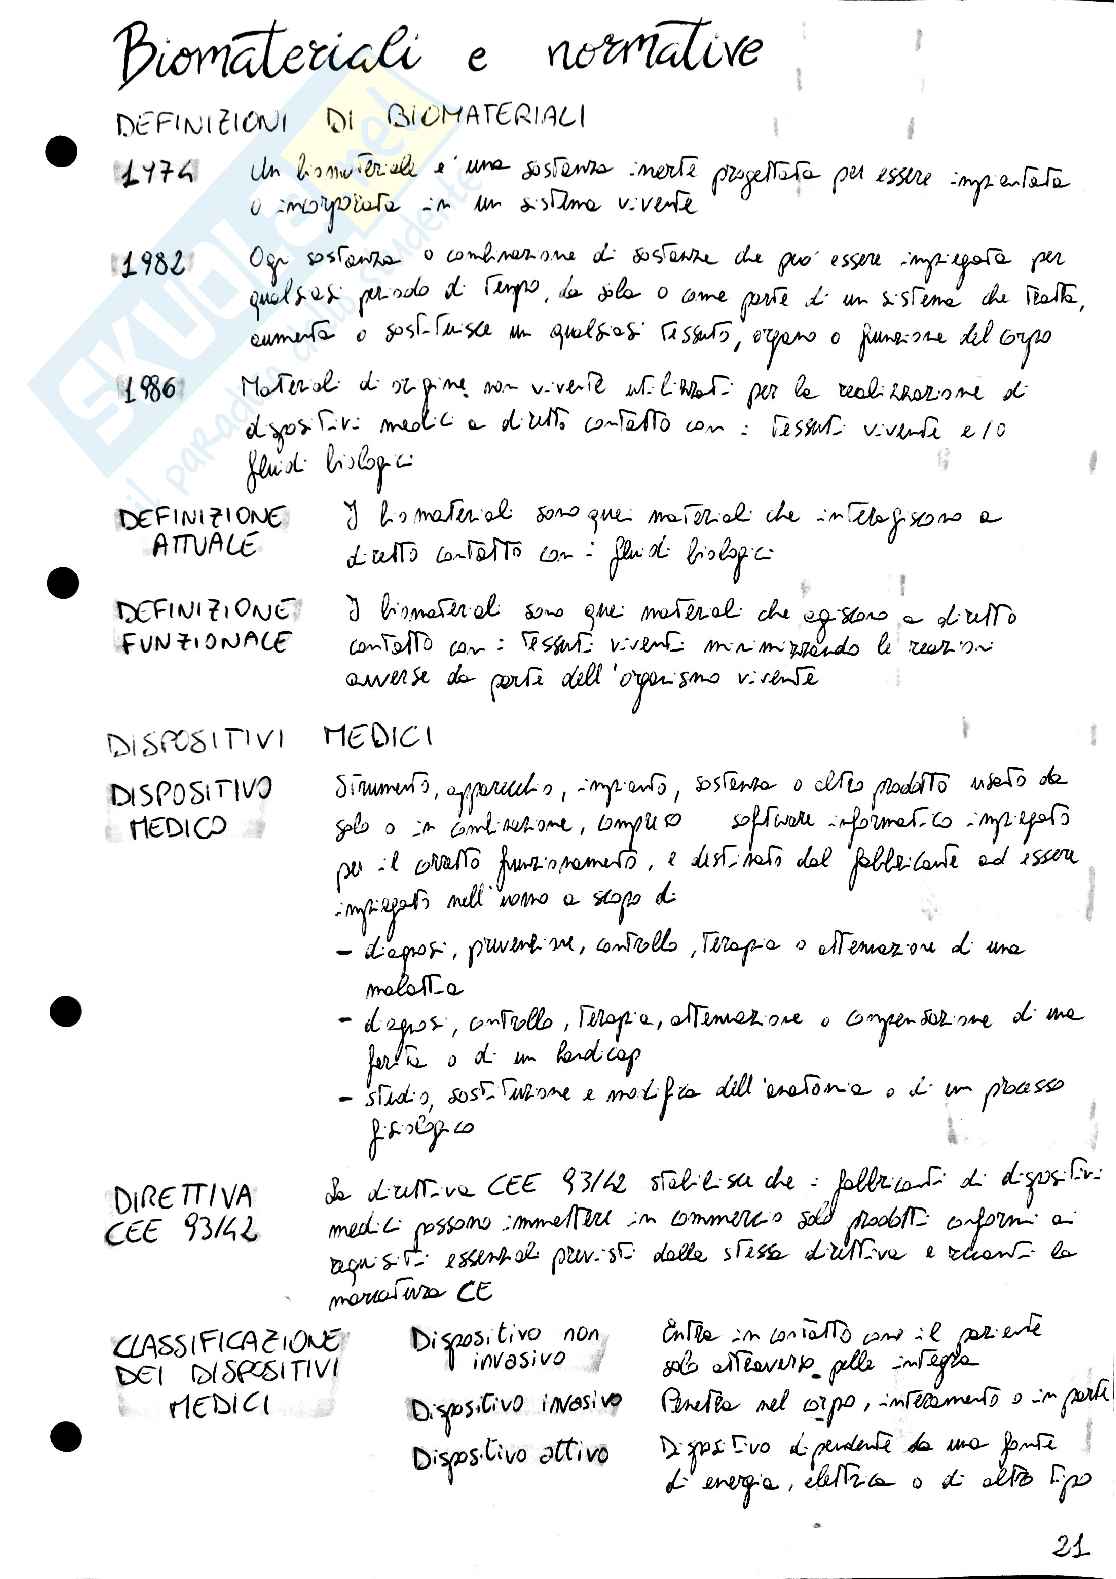 Biomateriali e normative
DEFINIZIONI DI BIOMATERIALI
1974 Un biomateriale e' una sostanza inerte progettata per essere impiantata
o incorporata in un sistema vivente
1982 Ogni sostanza o combinazione di sostanze che puo' essere impiegata per
qualsiasi periodo di tempo, da sola o come parte di un sistema che tratta,
aumenta o sostituisce un qualsiasi tessuto, organo o funzione del corpo
1986 Materiali di origine non vivente utilizzati per la realizzazione di
dispositivi medici a diretto contatto con i tessuti vivente e/o
fluidi biologici
DEFINIZIONE ATTUALE I biomateriali sono quei materiali che interagiscono a
diretto contatto con i fluidi biologici
DEFINIZIONE FUNZIONALE I biomateriali sono quei materiali che agiscono a diretto
contatto con i tessuti viventi minimizzando le reazioni
avverse da parte dell'organismo vivente
DISPOSITIVI MEDICI
DISPOSITIVO MEDICO Strumento, apparecchio, impianto, sostanza o altro prodotto usato da
solo o in combinazione, compreso software informatico impiegato
per il corretto funzionamento, e destinato dal fabbricante ad essere
impiegato nell'uomo a scopo di
- diagnosi, prevenzione, controllo, terapia o attenuazione di una
malattia
- diagnosi, controllo, terapia, attenuazione o compensazione di una
ferita o di un handicap
- studio, sostituzione e modifica dell'anatomia o di un processo
fisiologico
DIRETTIVA CEE 93/42 La direttiva CEE 93/42 stabilisce che i fabbricanti di dispositivi
medici possono immettere in commercio solo prodotti conformi ai
requisiti essenziali previsti dalla stessa direttiva e recanti la
marcatura CE
CLASSIFICAZIONE DEI DISPOSITIVI MEDICI
Dispositivo non invasivo Entra in contatto con il paziente
solo attraverso pelle integra
Dispositivo invasivo Penetra nel corpo, interamente o in parte
Dispositivo attivo Dispositivo dipendente da una fonte
di energia, elettrica o di altro tipo
21
SKUOLA.net
il paradiso dello studente